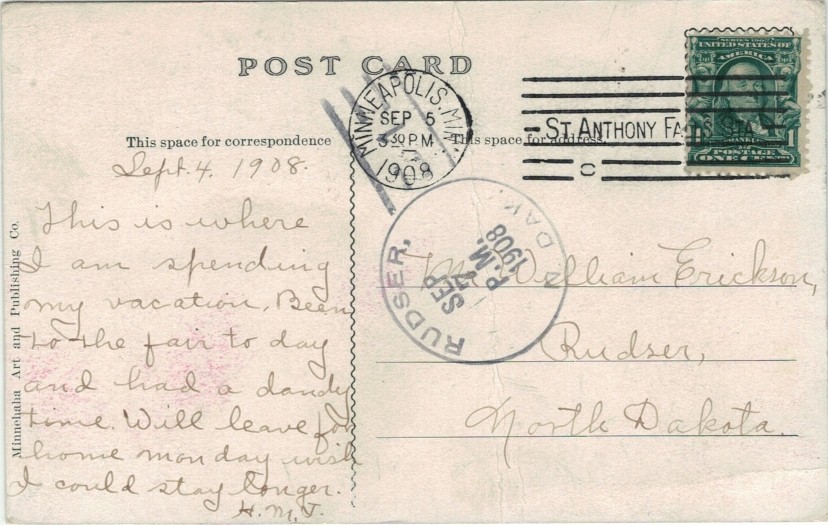 POST CARD
This space for correspondence
This space for address.
MINNEAPOLIS, MINN.
SEP 5
3 30 P.M.
1908
ST. ANTHONY FALLS STA.
SERIES 1902
UNITED STATES OF
AMERICA
FRANKLIN
POSTAGE
1 ONE CENT 1
RUDSER,
DAK.
SEP
P.M.
1908
Sept. 4, 1908.
This is where
I am spending
my vacation. Been
to the fair to day
and had a dandy
time. Will leave for
home monday wish
I could stay longer.
H.M.J.
Mr. William Erickson,
Rudser,
North Dakota.
Minnehaha Art and Publishing Co.